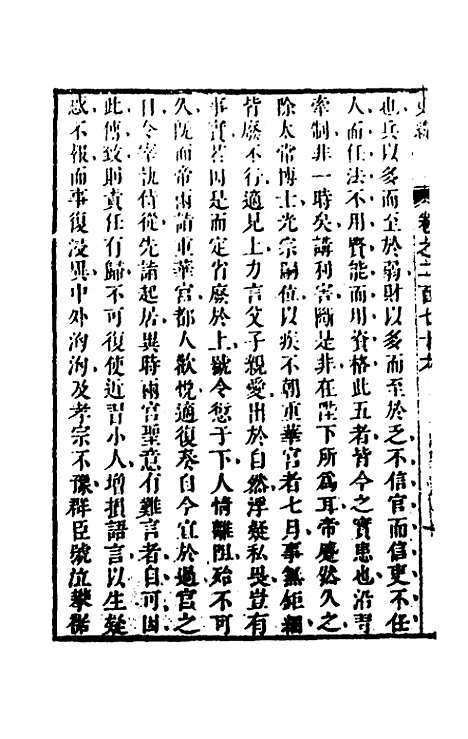 史緯
卷之二百七十九
也兵以多而至於弱財以多而至於乏不信官而信吏不任
人而任法不用賢能而用資格此五者皆今之實患也沿習
牽制非一時矣講利害斷是非在陛下所爲耳帝慼然久之
除太常博士光宗嗣位以疾不朝重華宮者七月事無鉅細
皆廢不行適見上力言父子親愛出於自然浮疑私畏豈有
事實若因是而定省廢於上號令愆于下人情離阻殆不可
久旣而帝兩詣重華宮都人歡悅適復奏自今宜於過宮之
日令宰執侍從先詣起居異時兩宮聖意有難言者自可因
此傳致則責任有歸不可復使近習小人增損語言以生疑
惑不報而事復浸異中外洶洶及孝宗不豫群臣號泣攀裾